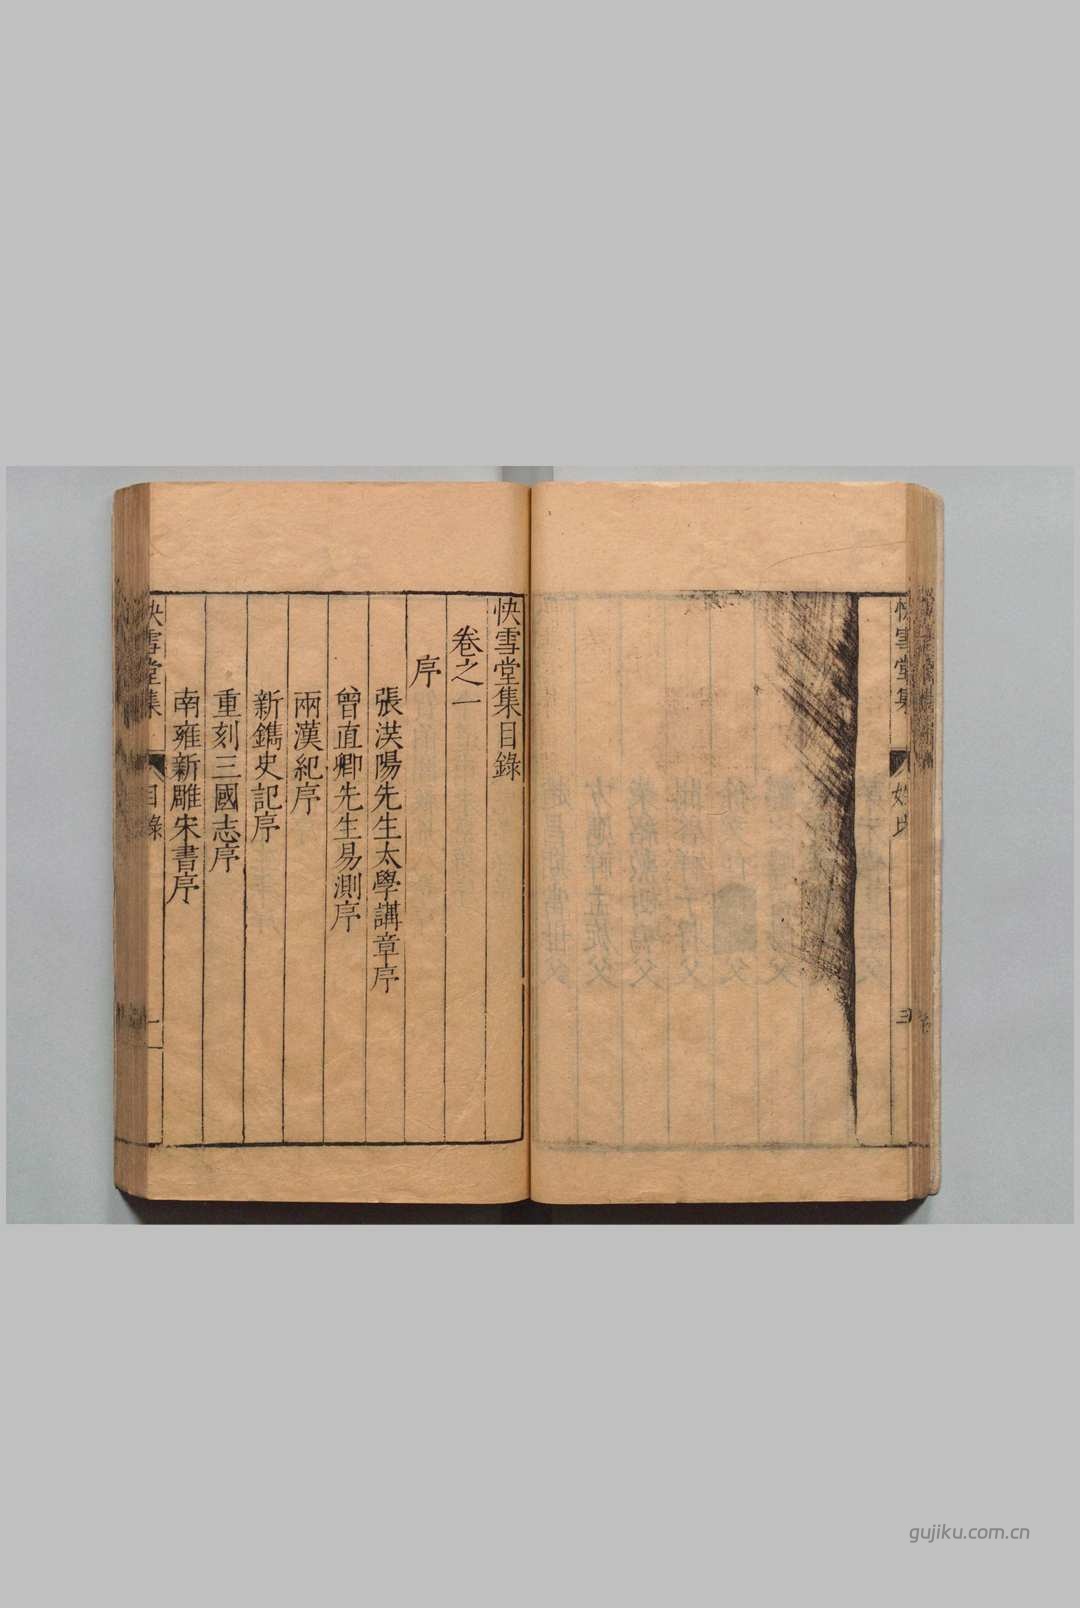 快雪堂集
三
快雪堂集目錄
卷之一
序
張漢陽先生太學講章序
曾直卿先生易測序
兩漢紀序
新鐫史記序
重刻三國志序
南雍新雕宋書序
快雪堂集
目錄
一
gujiku.com.cn